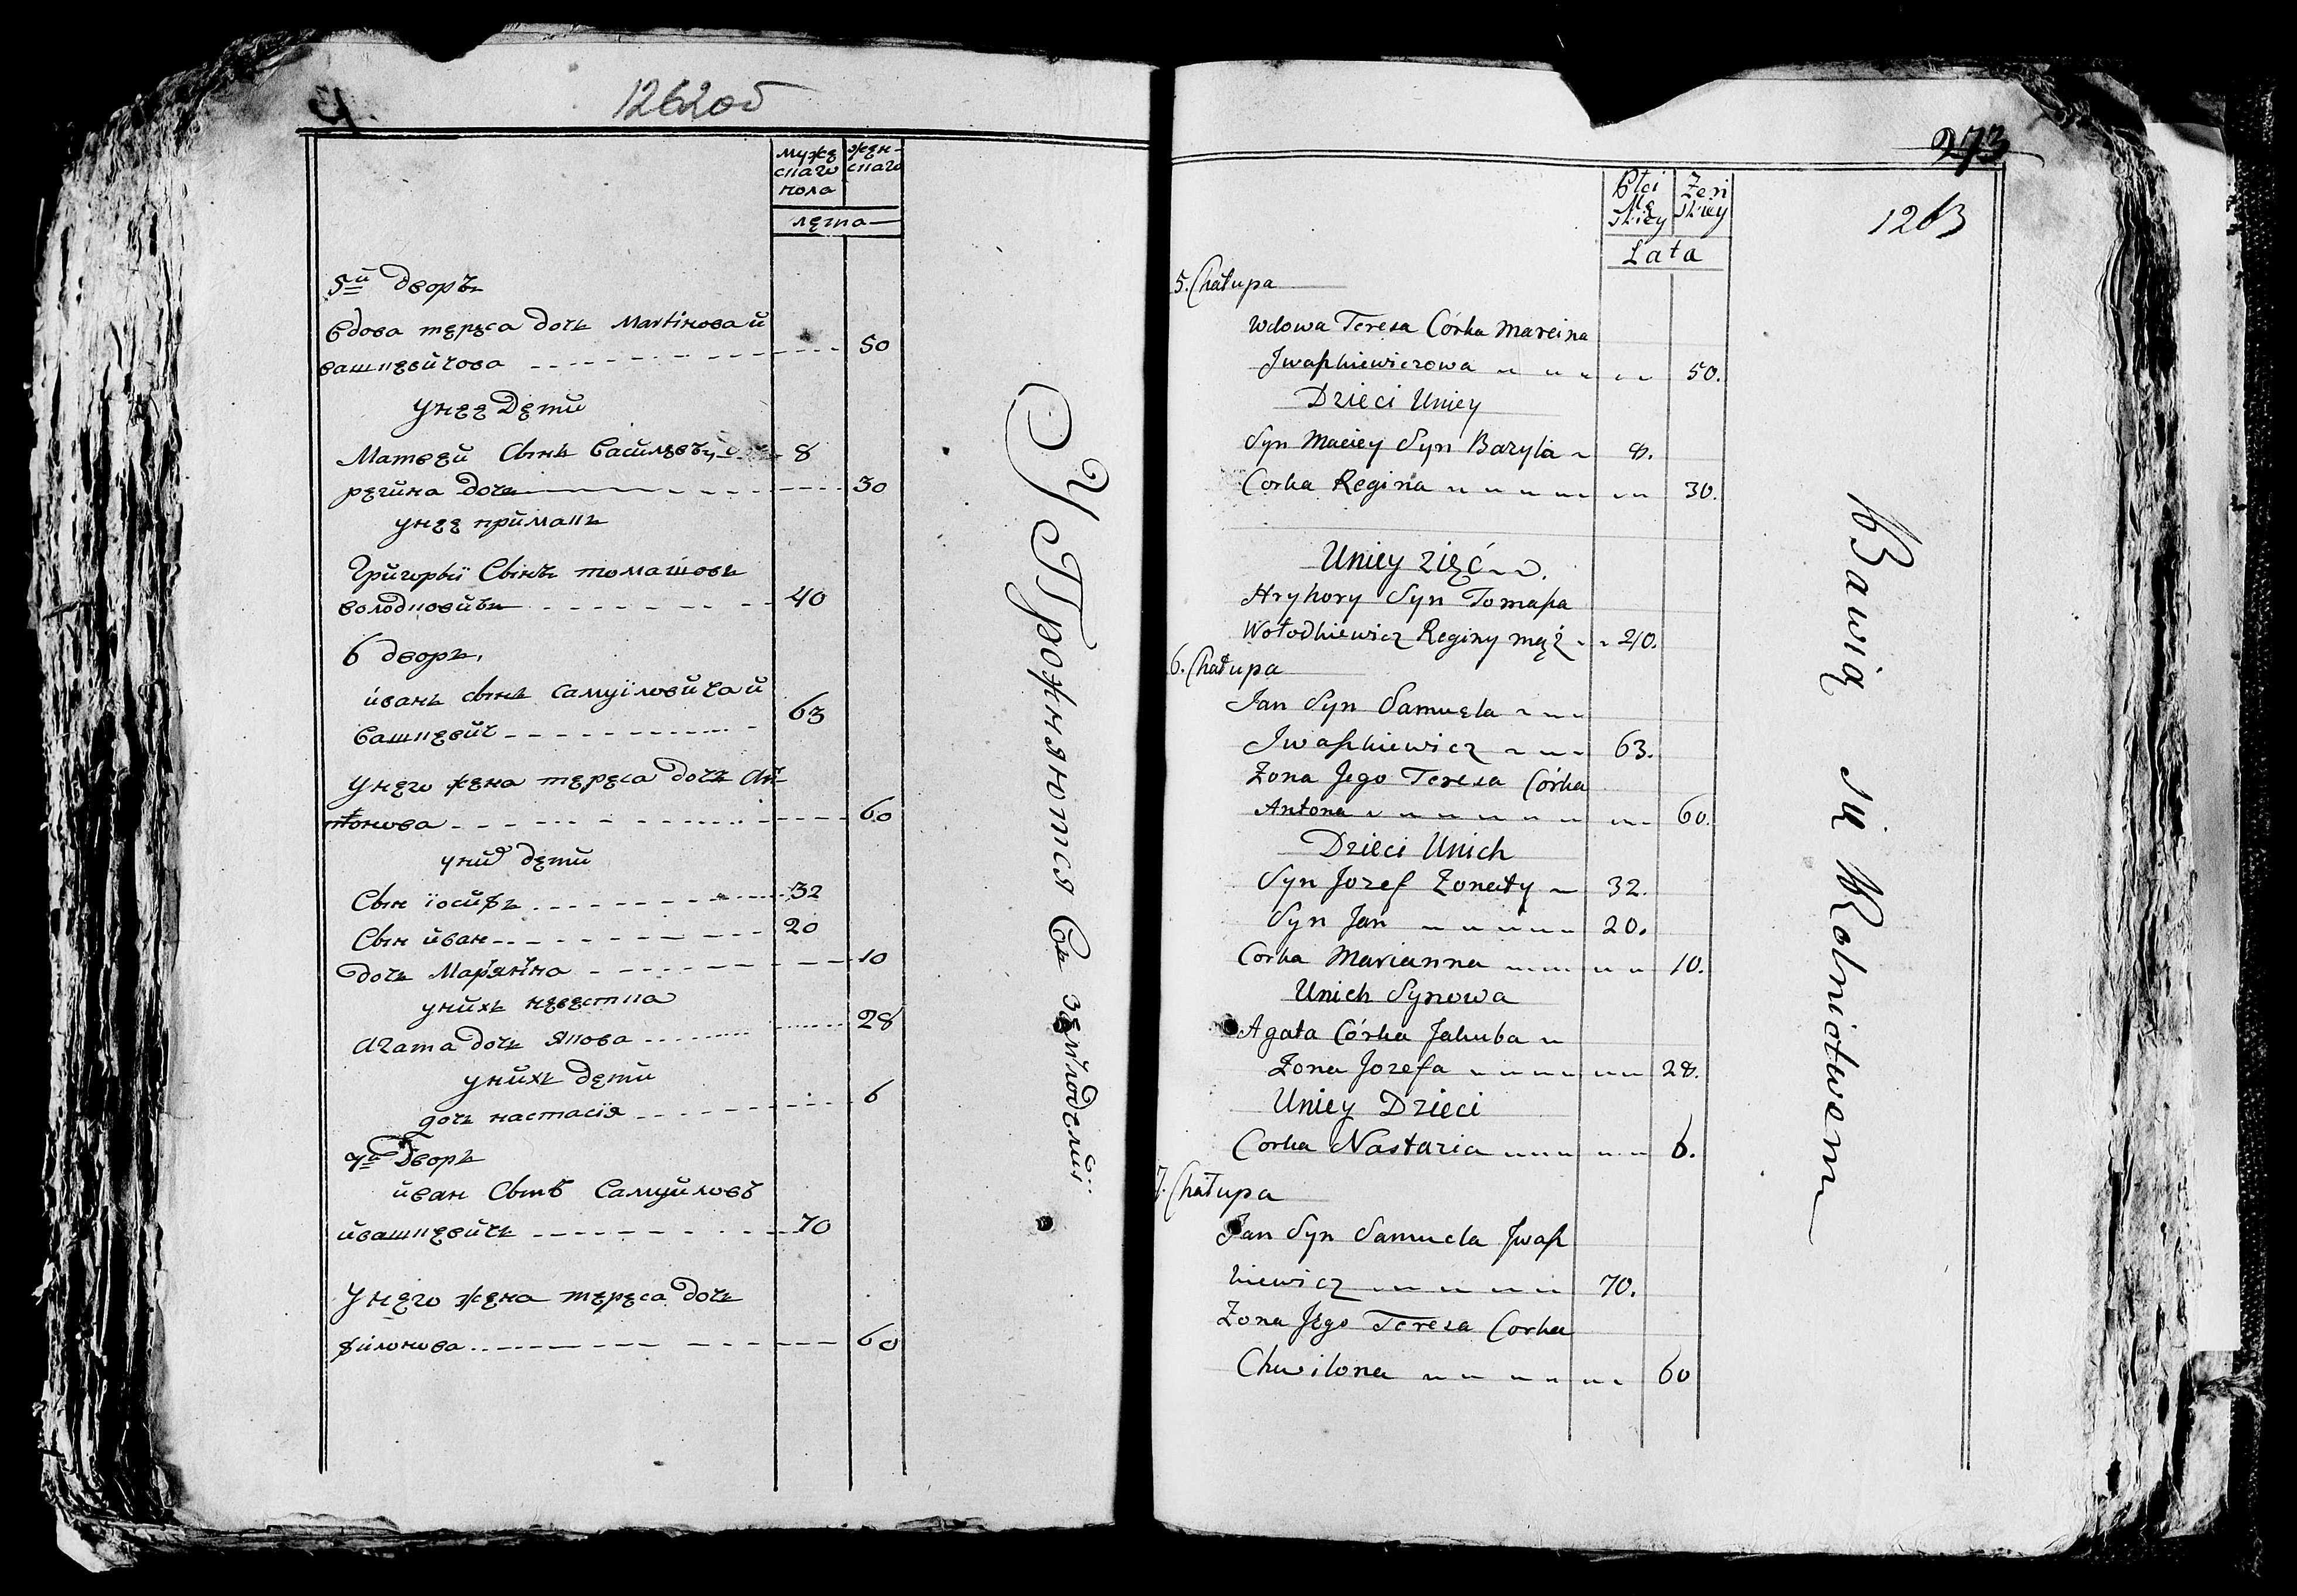 1262об
мужескаго пола
женскаго
лета
5й дворъ
вдова тереса дочь Мартiнова й
вашкевичова 50
у нее Дети
Матвей Сынъ Василевъ 8
регина дочь 30
у нее примакъ
Григорый Сынъ томашовъ
володковичъ 40
6 дворъ.
иванъ сынъ самуйловича й
вашкевич 63
у него жена тереса дочь Ан
тонова 60
у них дети
Сын iосифъ 32
Сын иван 20
дочь Марянна 10
у нихъ невестка
Агата дочь Якова 28
у нихъ дети
дочь настасiя 6
7й Дворъ
иван Сынъ Самуйловъ
ивашкевичъ 70
У него жена тереса дочь
филонова 60
Упрожняются Съ земледелiя
273
1263
Płci Mę skiey
Żeń skiey
Lata
5. Chałupa
Wdowa Teresa Córka Marcina
Jwaszkiewiczowa 50.
Dzieci Uniey
Syn Maciey Syn Bazyla 8.
Corka Regina 30.
Uniey zięć
Hryhory Syn Tomasza
Wołodkiewicz Reginy mąż 40.
6. Chałupa
Jan Syn Samuela
Jwaszkiewicz 63.
Żona Jego Teresa Córka
Antona 60.
Dzieci Unich
Syn Jozef Żonaty 32.
Syn Jan 20.
Corka Marianna 10.
Unich Synowa
Agata Córka Jakuba
Żona Jozefa 28.
Uniey Dzieci
Corka Nastazia 6.
7. Chałupa
Jan Syn Samuela Jwasz
kiewicz 70.
Żona Jego Teresa Corka
Chwilona 60
Bawią się Rolnictwem